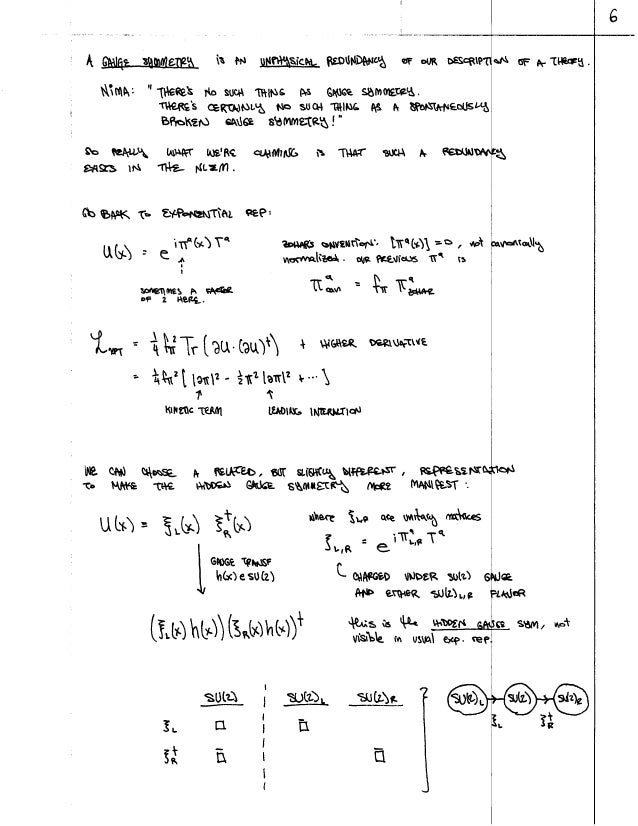 6
A GAUGE SYMMETRY IS AN UNPHYSICAL REDUNDANCY OF OUR DESCRIPTION OF A THEORY.
NIMA: "THERE'S NO SUCH THING AS GAUGE SYMMETRY.
THERE'S CERTAINLY NO SUCH THING AS A SPONTANEOUSLY
BROKEN GAUGE SYMMETRY!"
SO REALLY WHAT WE'RE CLAIMING IS THAT SUCH A REDUNDANCY
EXISTS IN THE NLΣM.
GO BACK TO EXPONENTIAL REP:
U(x) = e^{iπ^a(x)T^a}
SOMETIMES A FACTOR
OF 2 HERE.
ZOHAR'S CONVENTION: [π^a(x)] = 0, not canonically
normalized. OUR PREVIOUS π^a is
π^a_can = f_π π^a_ZOHAR
ℒ_χPT = 1/4 f_π² Tr(∂U·(∂U)†) + HIGHER DERIVATIVE
= 1/4 f_π² [ |∂π|² - 1/2 π² |∂π|² + ⋯ ]
KINETIC TERM LEADING INTERACTION
WE CAN CHOOSE A RELATED, BUT SLIGHTLY DIFFERENT, REPRESENTATION
TO MAKE THE HIDDEN GAUGE SYMMETRY MORE MANIFEST:
U(x) = ξ_L(x) ξ_R†(x)
where ξ_{L,R} are unitary matrices
ξ_{L,R} = e^{iπ^a_{L,R} T^a}
GAUGE TRANSF
h(x) ∈ SU(2)
CHARGED UNDER SU(2) GAUGE
AND EITHER SU(2)_{L,R} FLAVOR
(ξ_L(x) h(x))(ξ_R(x) h(x))†
this is the HIDDEN GAUGE SYM, not
visible in usual exp. rep.
SU(2) SU(2)_L SU(2)_R
ξ_L □ □̄
ξ_R† □̄ □̄
SU(2)_L SU(2) SU(2)_R
ξ_L ξ_R†